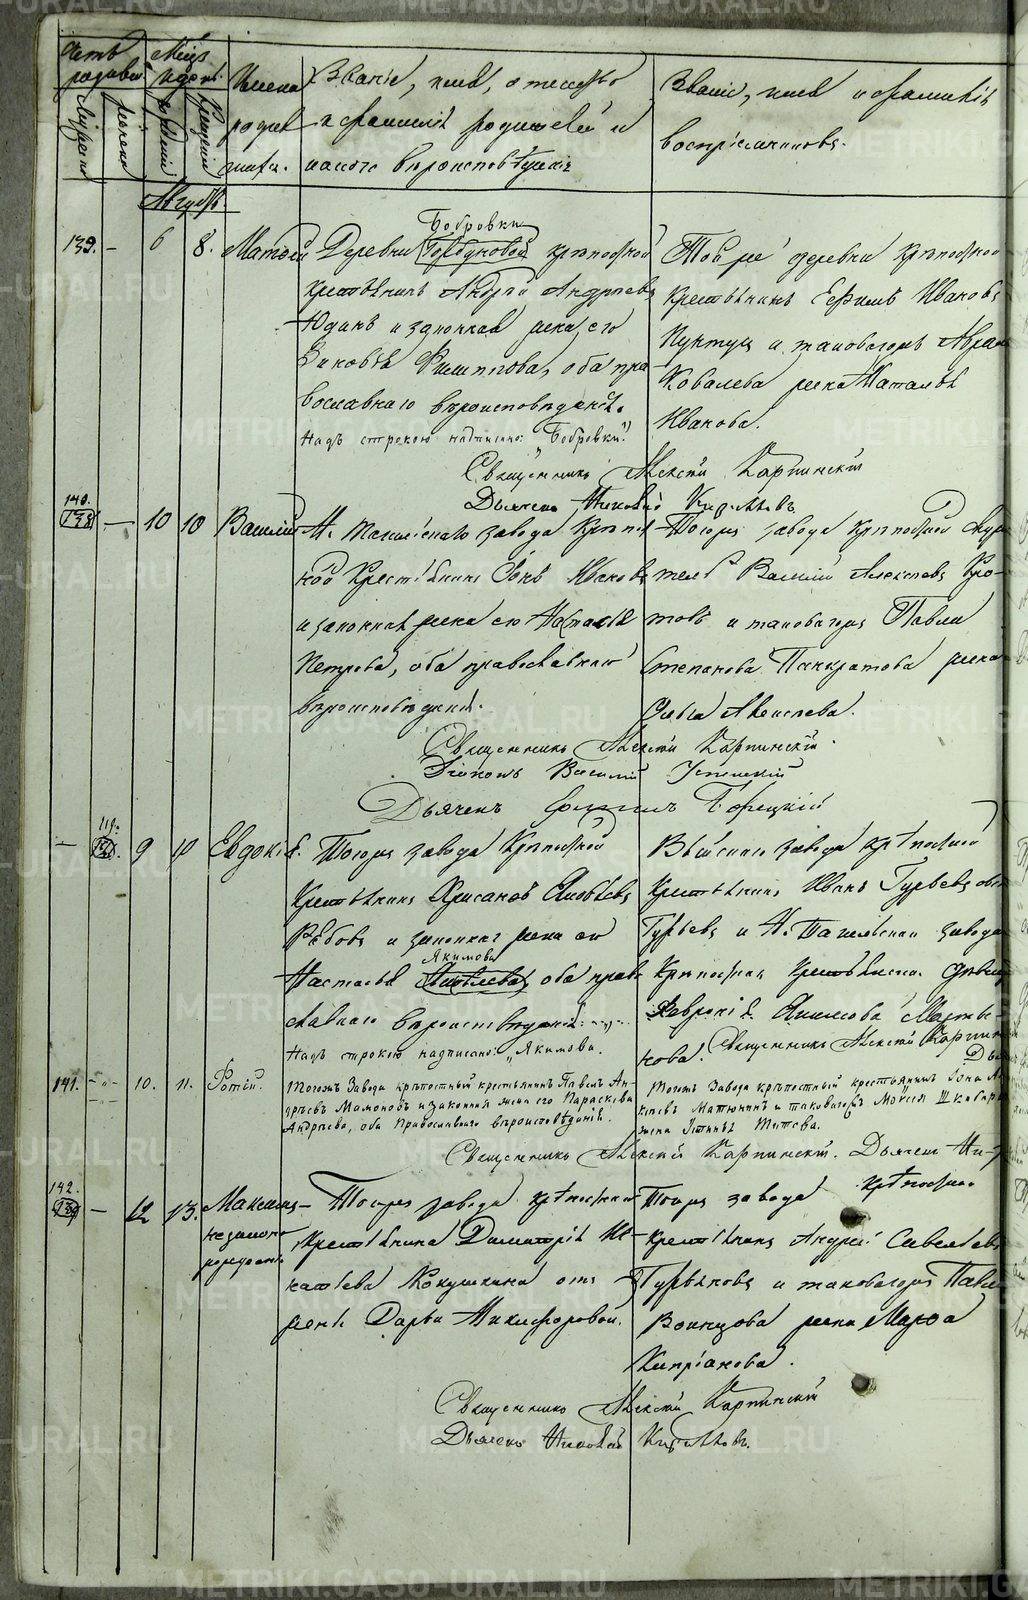 Счетъ родивш. Мѣсяцъ и день
Мужеска Женска рожденія Крещенія
Имена родившихъ.
Званіе, имя, отчество
и фамилія родителей и
какого вѣроисповѣданія
Званіе, имя и фамилія
воспріемниковъ.
Августъ.
Бобровки
139. — 6 8. Матѳій Деревни Горбуновой крѣпостной
крестьянинъ Андрей Андреевъ
Юдинъ и законная жена его
Зиновья Филиппова, оба пра
вославнаго вѣроисповѣданія.
Надъ строкою надписано: „Бобровки".
Той же деревни крѣпостной
крестьянинъ Ефимъ Ивановъ
и таковагожъ
Ковалева жена Наталья
Иванова.
Священникъ Алексій Карпинскій
Дьячекъ Николай
140.
138 — 10 10 Василій Н. Тагильскаго завода Крѣпост
ной Крестьянинъ Иванъ Ивановъ
и законная жена его Настасья
Петрова, оба православнаго
вѣроисповѣданія.
Тогожъ завода крѣпостной
Василій Алексѣевъ Кро-
товъ и таковагожъ Павла
Степанова Панкратова жена
Ольга Алексѣева.
Священникъ Алексій Карпинскій.
Діаконъ Василій Успенскій
Дьячекъ Горецкій
119.
— 9 10 Евдокія. Тогожъ завода Крѣпостной
Крестьянинъ Хрисанѳъ Яковлевъ
Рябовъ и законная жена его
Якимова
Настасья Яковлева, оба право
славнаго вѣроисповѣданія.
Надъ строкою надписано: „Якимова.
Выйскаго завода крѣпостной
Крестьянинъ Иванъ Гурьевъ
Гурьевъ и Н. Тагильскаго завода
Крѣпостная Крестьянская дѣвица
Ѳевронія Якимова Марты-
нова. Священникъ Алексій Карпин
141. — 10. 11. Фотій. Тогожъ Завода крѣпостный крестьянинъ Павелъ Ан-
дреевъ Мамоновъ и законная жена его Параскева
Андреева, оба Православнаго вѣроисповѣданія.
Тогожъ Завода крѣпостный крестьянинъ
Матюнинъ и таковагожъ Моѵсея
жена Устинья Титова.
Священникъ Алексій Карпинскій. Дьячекъ Ни-
142.
139 — 12 13. Максимъ
незаконно
рожденъ
Тогожъ завода крѣпостнаго
Крестьянина Димитрія Иг-
натьева Кокушкина отъ
жены Дарьи Никифоровой.
Тогожъ завода крѣпостной
крестьянинъ Андрей Савельевъ
Гурьяновъ и таковагожъ Павла
Воинцова жена Марѳа
Кипріанова.
Священникъ Алексій Карпинскій
Дьячекъ Николай